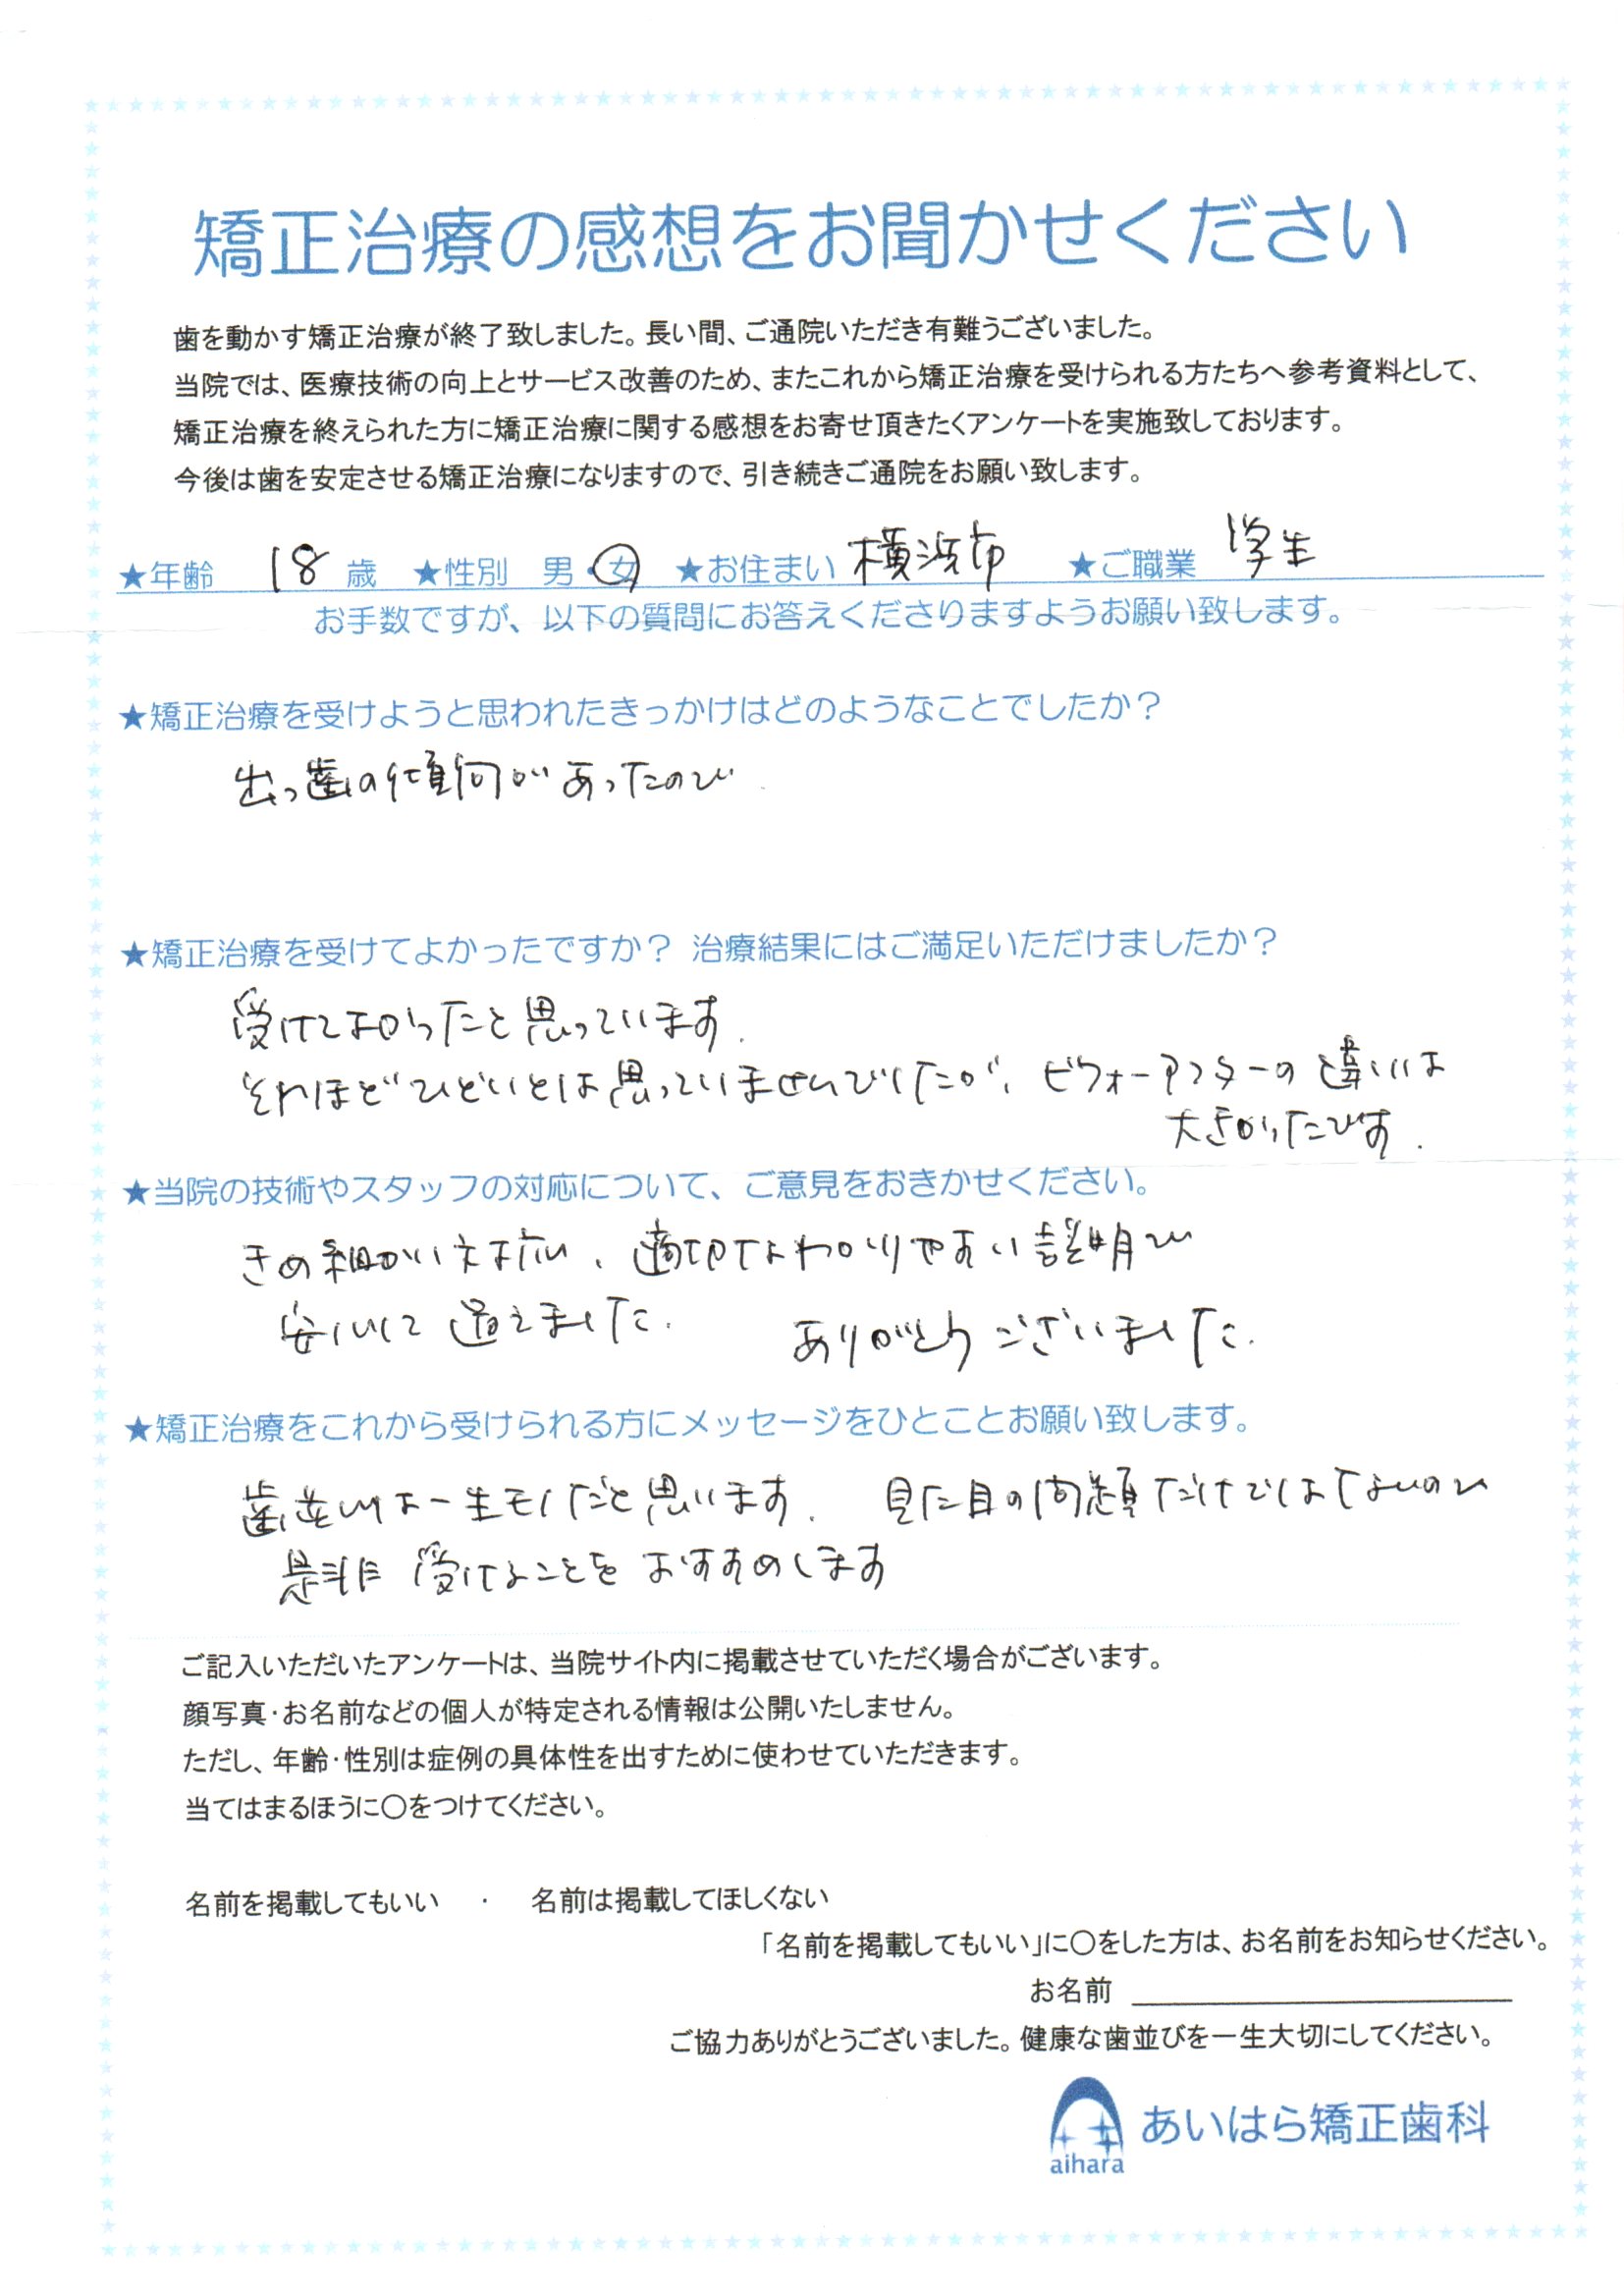 矯正治療の感想をお聞かせください
歯を動かす矯正治療が終了致しました。長い間、ご通院いただき有難うございました。
当院では、医療技術の向上とサービス改善のため、またこれから矯正治療を受けられる方たちへ参考資料として、
矯正治療を終えられた方に矯正治療に関する感想をお寄せ頂きたくアンケートを実施致しております。
今後は歯を安定させる矯正治療になりますので、引き続きご通院をお願い致します。
★年齢 18 歳 ★性別 男・女 ★お住まい 横浜市 ★ご職業 学生
お手数ですが、以下の質問にお答えくださりますようお願い致します。
★矯正治療を受けようと思われたきっかけはどのようなことでしたか?
出っ歯の傾向があったので
★矯正治療を受けてよかったですか? 治療結果にはご満足いただけましたか?
受けてよかったと思っています.
それほどひどいとは思っていませんでしたが、ビフォーアフターの違いは
大きかったです.
★当院の技術やスタッフの対応について、ご意見をおきかせください。
きめ細かい対応、適切なわかりやすい説明で
安心して通えました. ありがとうございました.
★矯正治療をこれから受けられる方にメッセージをひとことお願い致します。
歯並びは一生モノだと思います. 見た目の問題だけではないので
是非受けることをおすすめします
ご記入いただいたアンケートは、当院サイト内に掲載させていただく場合がございます。
顔写真・お名前などの個人が特定される情報は公開いたしません。
ただし、年齢・性別は症例の具体性を出すために使わせていただきます。
当てはまるほうに○をつけてください。
名前を掲載してもいい ・ 名前は掲載してほしくない
「名前を掲載してもいい」に○をした方は、お名前をお知らせください。
お名前
ご協力ありがとうございました。健康な歯並びを一生大切にしてください。
あいはら矯正歯科
aihara